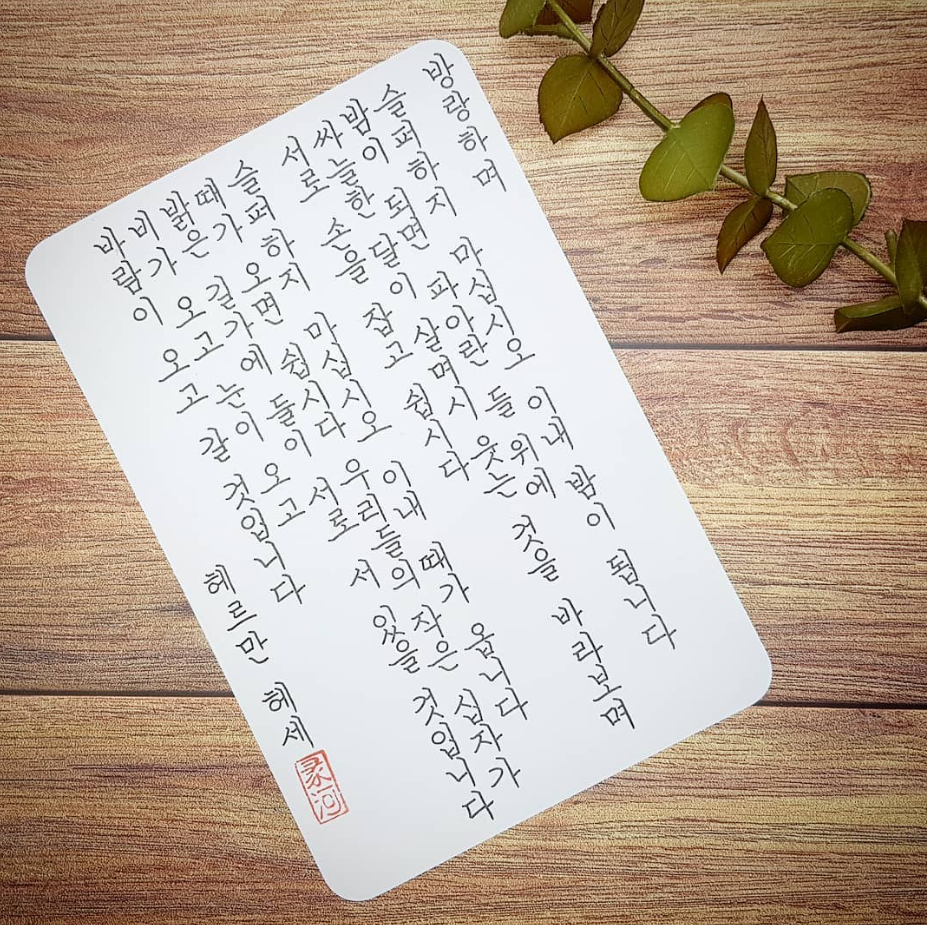 방랑하며
슬퍼하지 마십시오 이내 밤이 됩니다
밤이 되면 파아란 들 위에
싸늘한 달이 살며시 웃는 것을 바라보며
서로 손을 잡고 쉽시다
슬퍼하지 마십시오 이내 때가 옵니다
때가 오면 쉽시다 우리들의 작은 십자가
밝은 길가에 둘이 서로 서 있을 것입니다
비가 오고 눈이 오고
바람이 오고 갈 것입니다
헤르만 헤세